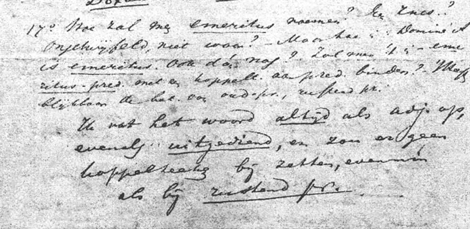 17° Hoe zal men emeritus noemen? En znw.?
Ongetwijfeld, niet waar? - Maar hoe : Dominé A
is emeritus. Ook dan nog? Zal men 't : eme
ritus-pred. met een koppelt. aan pred. binden?
blijkbaar de bet. van oud-pr., rustend pr.
Ik vat het woord altijd als adj. op,
evenals uitgediend, en zou er geen
koppelteeken bij zetten, evenmin
als bij rustend pr.